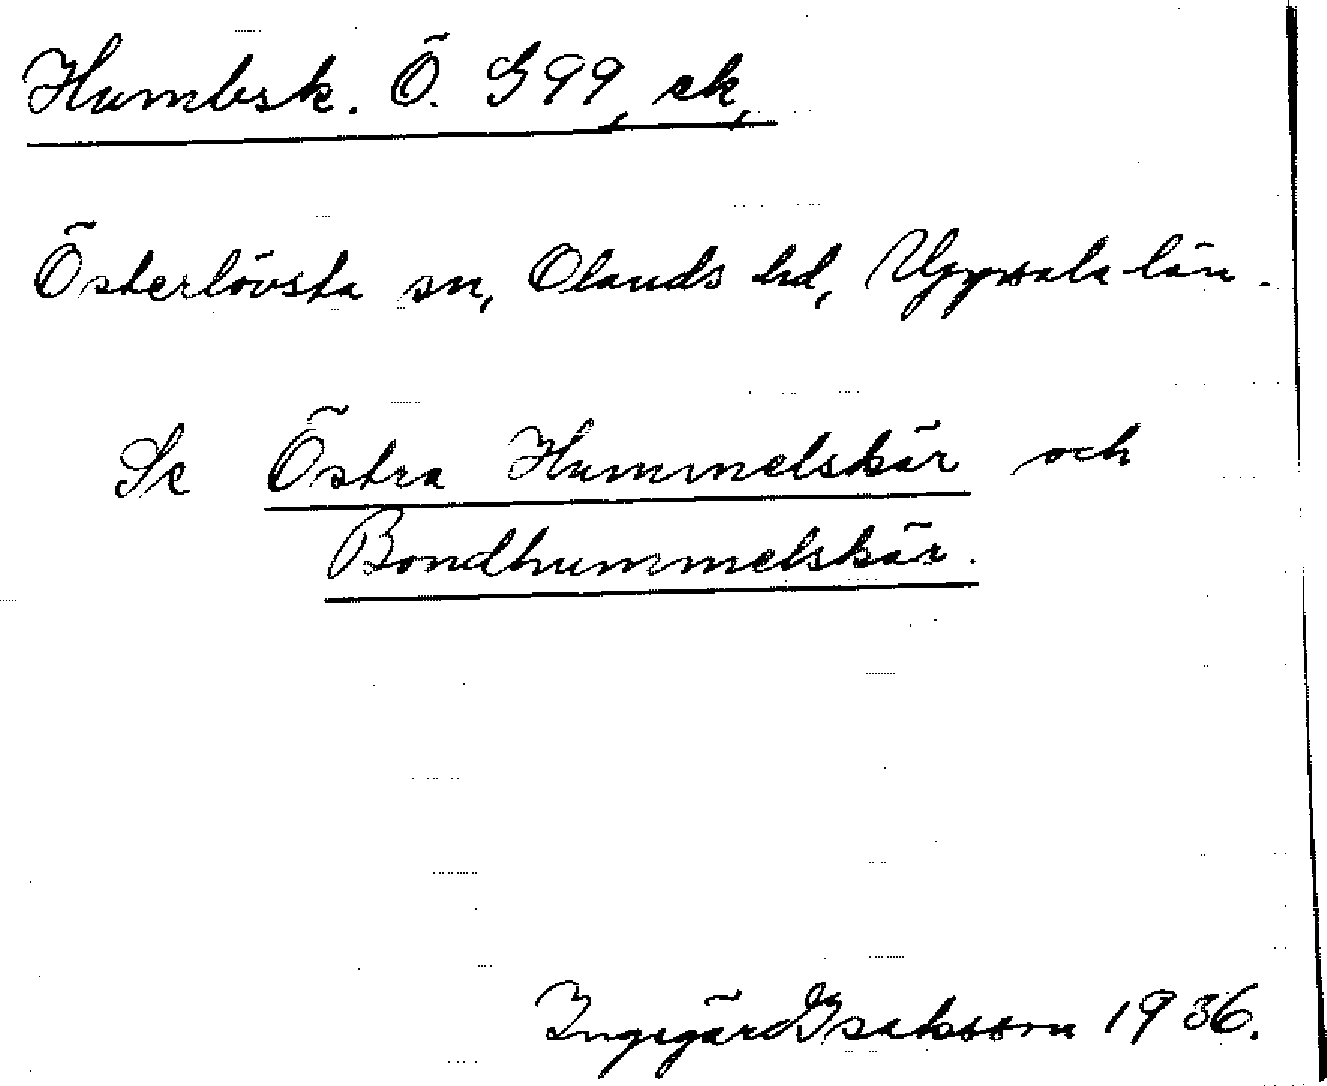 Humbsk. Ö. G 99, ek,
Österlövsta sn, Olands hd, Uppsala län.
Se Östra Hummelskär och
Bondhummelskär.
Ingegärd Isaksson 1936.